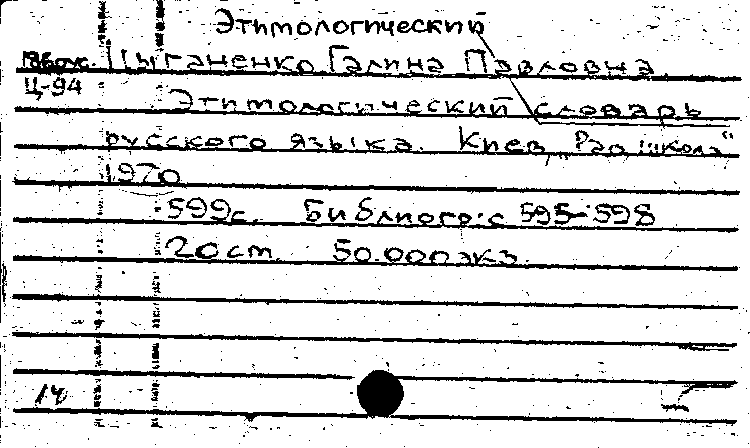 Этимологический
Цыганенко Галина Павловна.
Ц-94
Этимологический словарь
русского языка. Киев, „Рад. школа"
1970
599с. Библиогр: с 595-598
20 cm 50.000 экз.
14